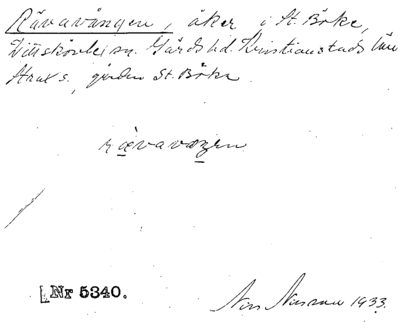 Rävavången, åker i St. Böke,
Vittskövle sn. Gärds hd. Kristianstads län
Strax s. gården St. Böke.
rævavaŋen
Nr 5340.
1933.